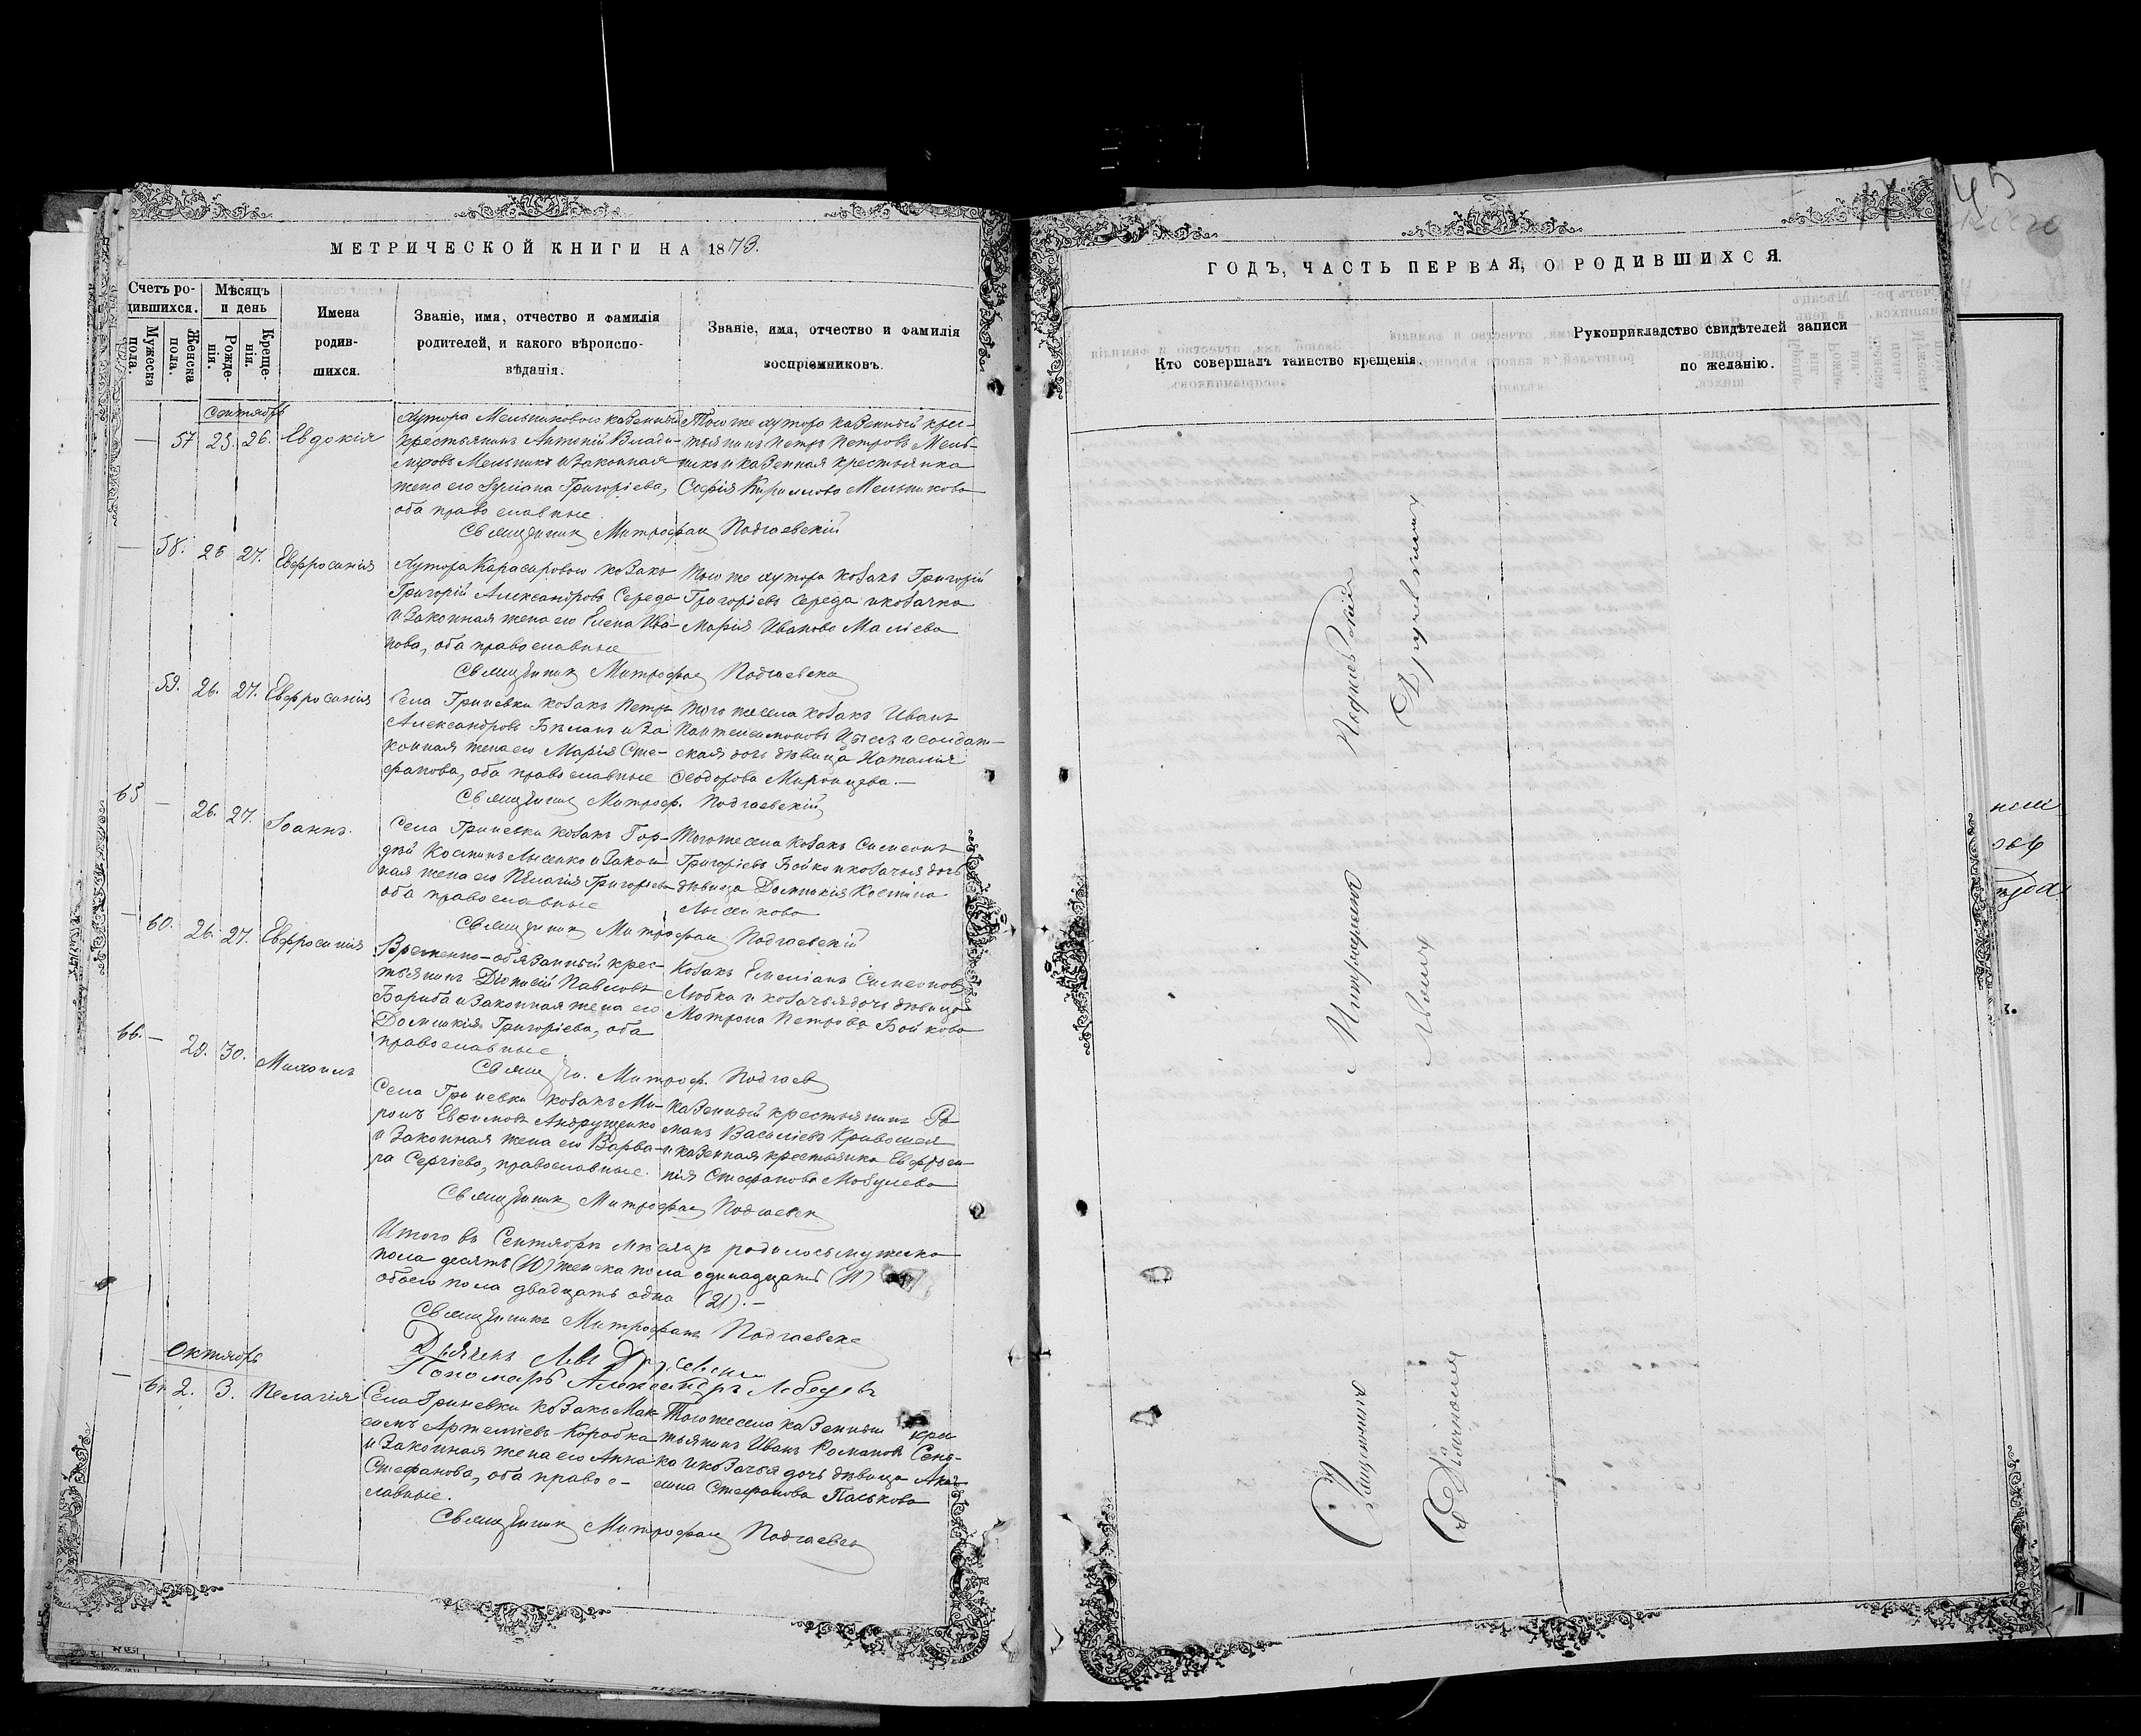 МЕТРИЧЕСКОЙ КНИГИ НА 1873.
Счетъ ро-
дившихся.
Мужеска пола.
Женска пола.
Мѣсяцъ
и день
Рожде-
нія.
Креще-
нія.
Имена
родив-
шихся.
Званіе, имя, отчество и фамилія
родителей, и какого вѣроиспо-
вѣданія.
Званіе, имя, отчество и фамилія
воспріемниковъ.
Сентябрь
— 57 25. 26. Евдокія
Хутора Мельникового казенный
крестьянинъ Антоній Влади-
міровъ Мельникъ и законная
жена его Іуліана Григоріева,
оба православные
Того же хутора казенный крес-
тьянинъ Петръ Петровъ Мель-
никъ и казенная крестьянка
Софія Кириллова Мельникова
Священникъ Митрофанъ Подгаевскій
— 58. 26 27. Евфросинія
Хутора Карасирового козакъ
Григорій Александровъ Середа
и законная жена его Елена Ива-
нова, оба православные
Того же хутора козакъ Григорій
Григоріевъ Середа и козачка
Марія Иванова Маліева
Священникъ Митрофан Подгаевски
59. 26. 27. Евфросинія
Села Гриневки козакъ Петръ
Александровъ Бѣланъ и за
конная жена его Марія Сте-
фанова, оба православные
Того же села козакъ Иванъ
Пантелеимоновъ и солдат-
ская дочь дѣвица Наталія
Ѳеодорова Миронцева.—
Священник Митроф. Подгаевскій
65 — 26. 27. Іоаннъ.
Села Гриневки козакъ Гор-
дѣй Костинъ Лысенко и закон
ная жена его Пелагія Григорьева
оба православные
Того же села козакъ Симеонъ
Григоріевъ Бойко и козачья дочь
дѣвица Домникія Костина
Лысенкова
Священник Митрофан Подгаевскій
— 60. 26. 27. Евфросинія
Временно-обязанный крес-
тьянинъ Діонисій Павловъ
Барыба и законная жена его
Домникія Григоріева, оба
православные.
Козакъ Емеліанъ Симеоновъ
Любка и козачья дочь дѣвица
Матрона Петрова Бойкова
Священ. Митроф. Подгаев
66. — 29. 30. Михаилъ
Села Гриневки козакъ Ми-
ронъ Евфимовъ Андрущенко
и законная жена его Варва-
ра Сергіева, православные.
Казенный крестьянинъ Ро
манъ Василіевъ Кривошея
и казенная крестьянка Евфроси-
нія Стефанова
Священник Митрофан Подгаевск
Итого въ Сентябрѣ мѣсяцѣ родилось мужеска
пола десять (10) женска пола одинадцать (11)
обоего пола двадцать одна (21).—
Священникъ Митрофанъ Подгаевскі
Дьячекъ Левъ
Пономарь Александръ Лебедевъ
Октябрь
— 61 2. 3. Пелагія
Села Гриневки козакъ Мак-
симъ Артеміевъ Коробка
и законная жена его Анна
Стефанова, оба правос-
лавные.
Того же села казенный крес
тьянинъ Иванъ Романовъ Сень-
ко и козачья дочь дѣвица Аку
лина Стефанова Панькова
Священник Митрофан Подгаевск
ГОДЪ, ЧАСТЬ ПЕРВАЯ, О РОДИВШИХСЯ.
45
Кто совершалъ таинство крещенія.
Рукоприкладство свидѣтелей записи
по желанію.
Священникъ Митрофанъ